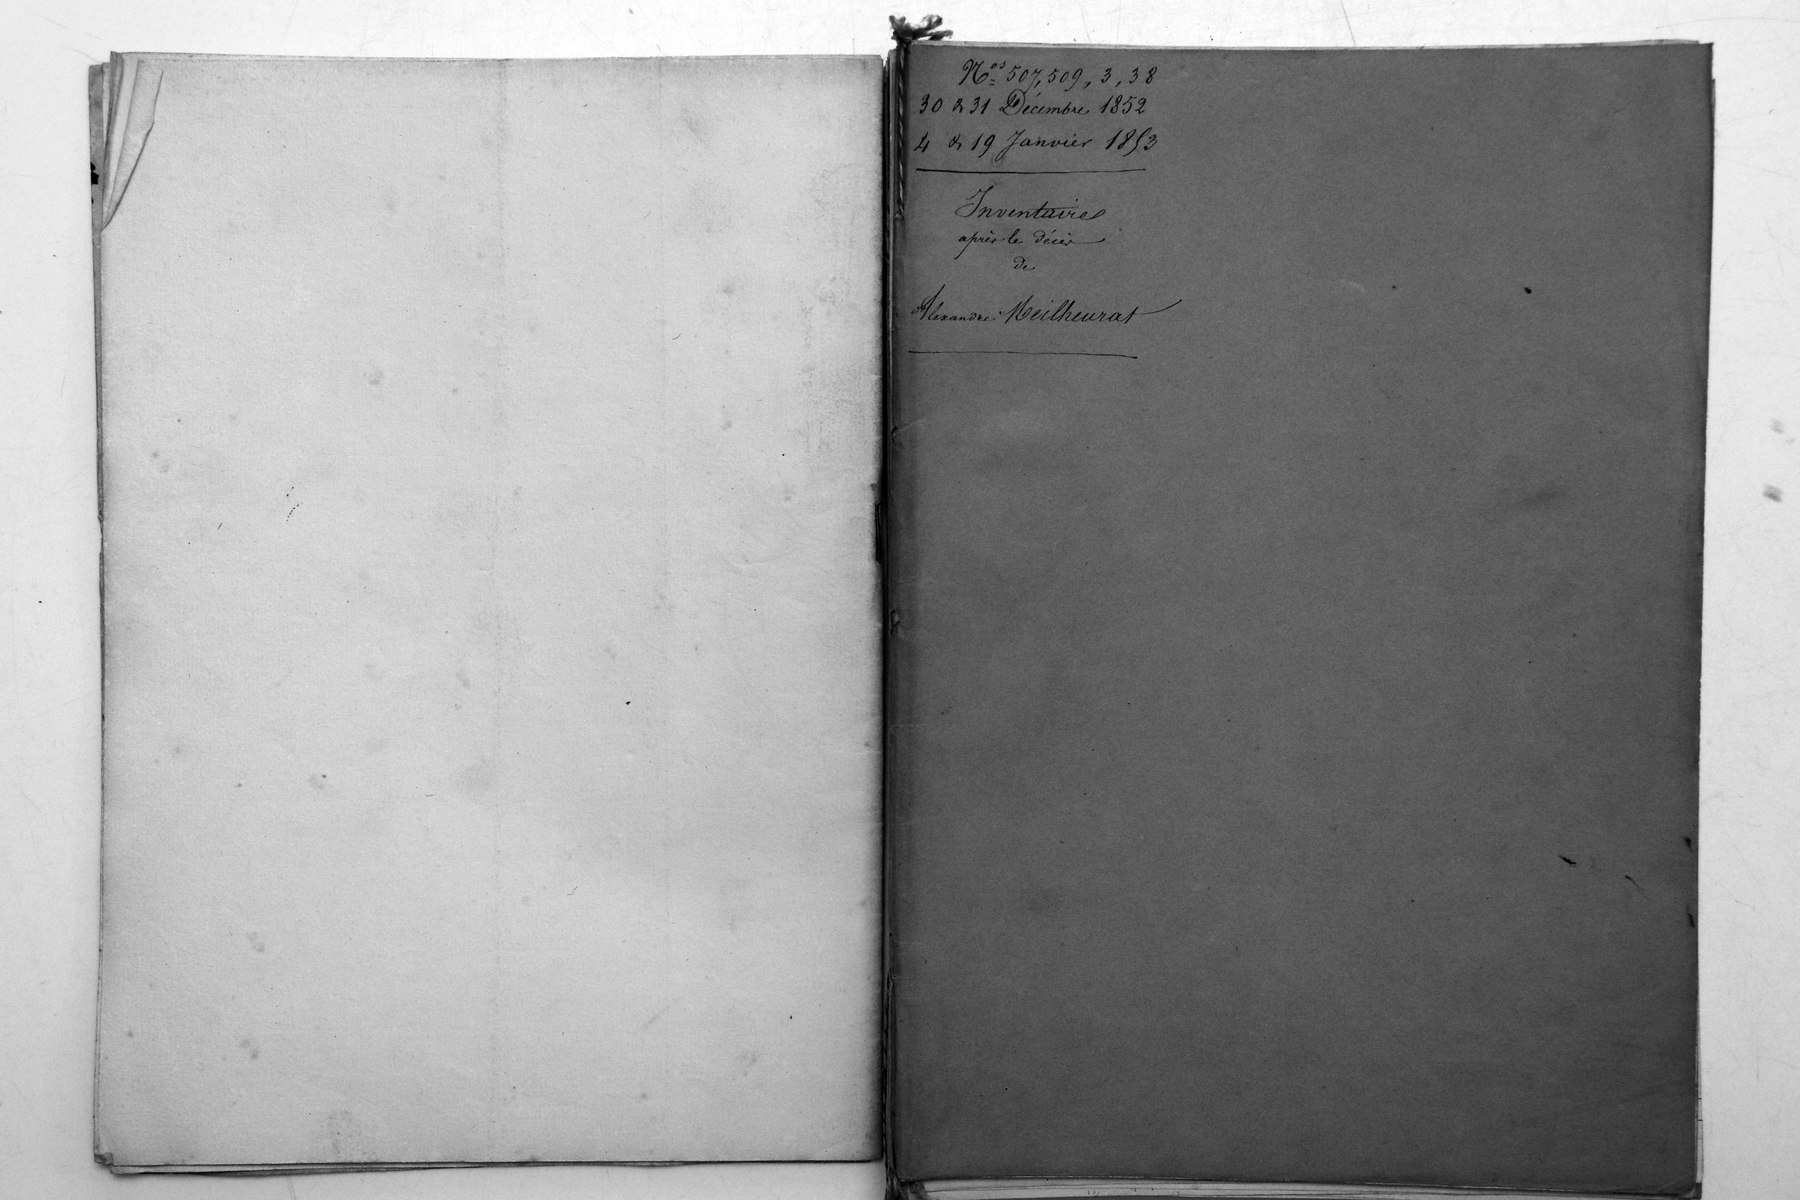 Nos 507, 509, 3, 38
30 & 31 Décembre 1852
4 & 19 Janvier 1853
Inventaire
après le décès
de
Alexandre Meilheurat